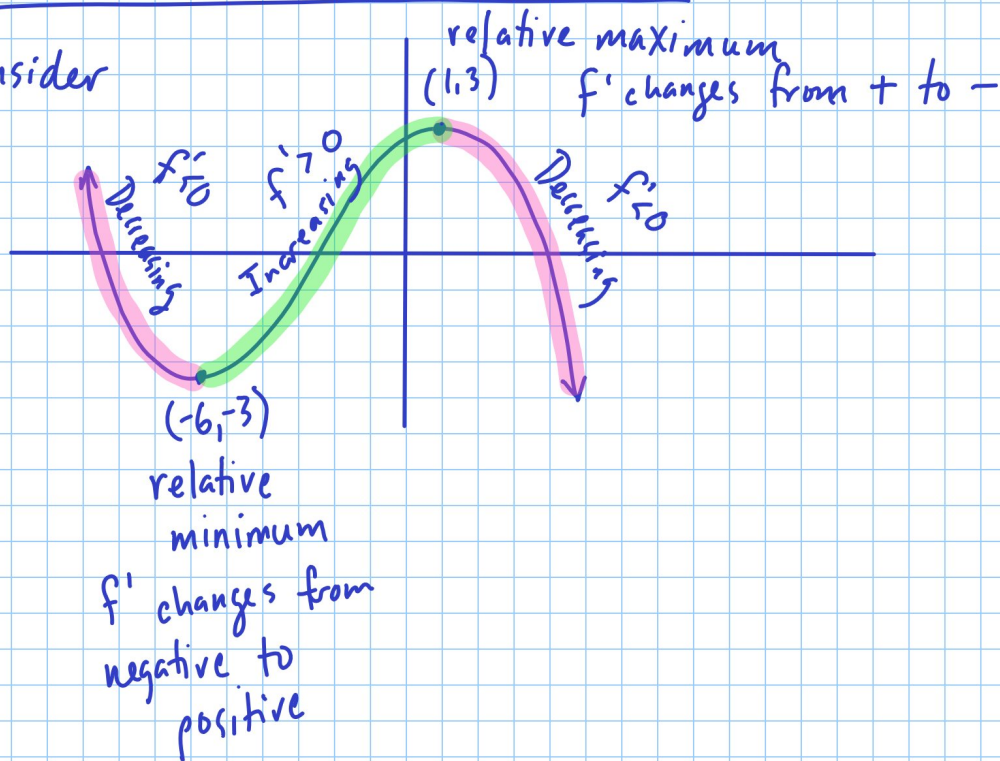 relative maximum
nsider
(1,3)
f' changes from + to -
f'<0
f'>0
f'<0
Decreasing
Increasing
Decreasing
(-6,-3)
relative
minimum
f' changes from
negative to
positive